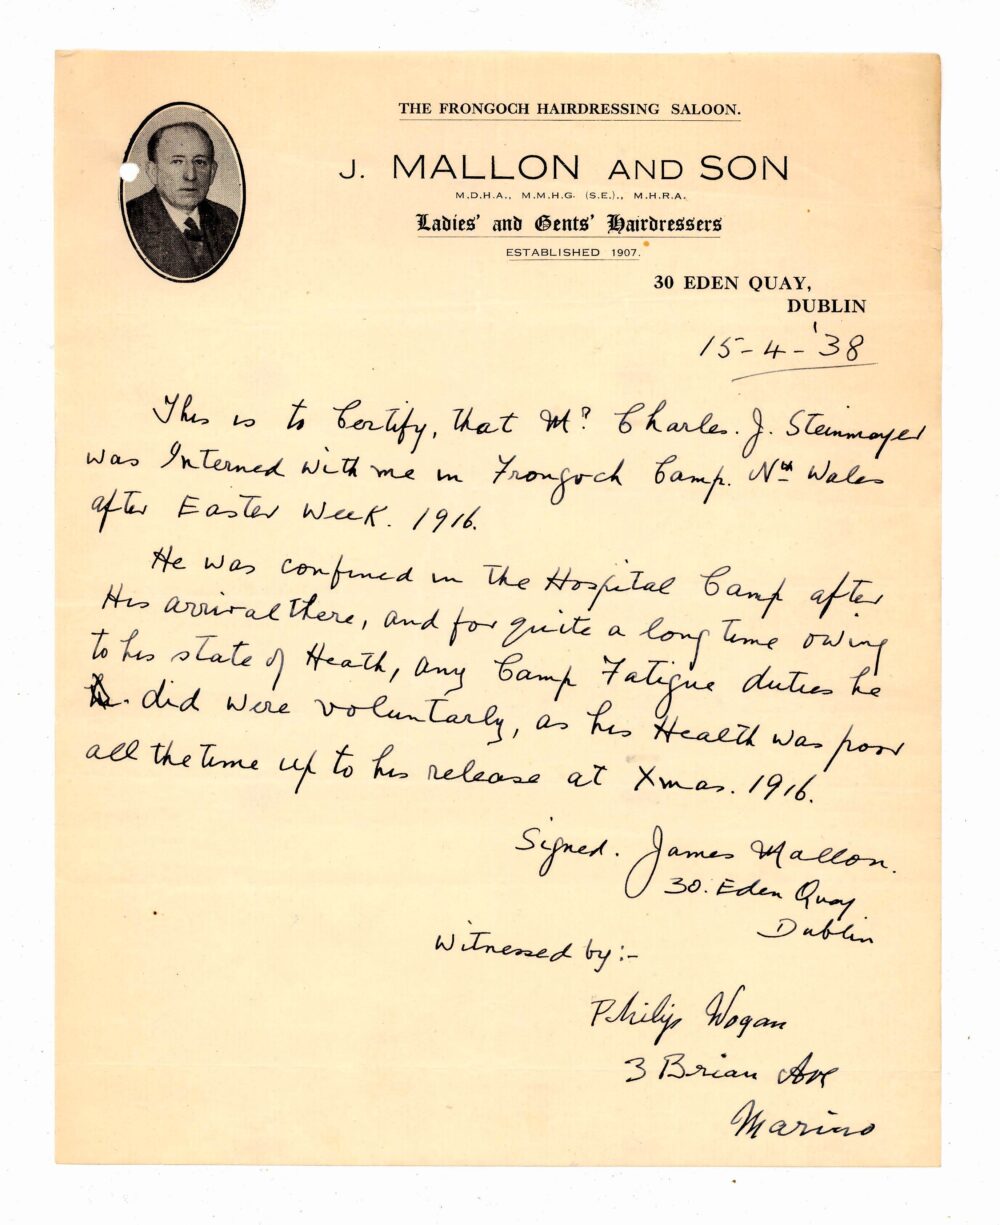 THE FRONGOCH HAIRDRESSING SALOON.
J. MALLON AND SON
M.D.H.A., M.M.H.G. (S.E.)., M.H.R.A.
Ladies' and Gents' Hairdressers
ESTABLISHED 1907.
30 EDEN QUAY,
DUBLIN
15-4-'38
This is to Certify, that Mr. Charles. J. Steinmayer
was Interned with me in Frongoch Camp. Nth Wales
after Easter Week. 1916.
He was confined in the Hospital Camp after
His arrival there, and for quite a long time owing
to his state of Heath, any Camp Fatigue duties he
did were voluntarly, as his Health was poor
all the time up to his release at Xmas. 1916.
Signed. James Mallon.
30. Eden Quay
Dublin
Witnessed by:-
Philip Wogan
3 Brian Ave
Marino